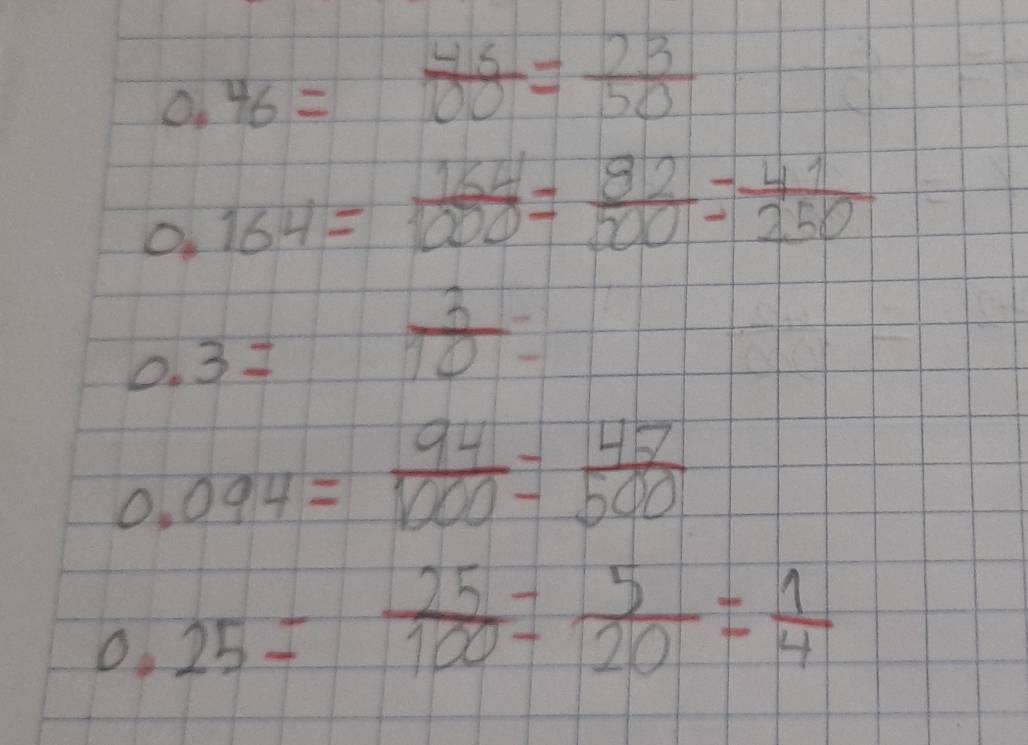 0.46 = 46/100 = 23/50
0.164 = 164/1000 = 82/500 = 41/250
0.3 = 3/10 =
0.094 = 94/1000 = 47/500
0.25 = 25/100 = 5/20 = 1/4